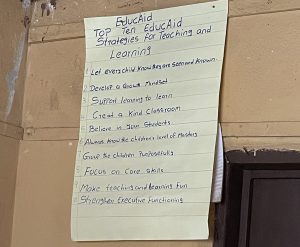 EducAid
Top Ten EducAid
Strategies for Teaching and
Learning
Let every child know they are seen and known
Develop a Growth Mindset
Support learning to learn
Creat a Kind Classroom
Believe in Your Students
Always Know the children's level of Mastery
Group the children Purposefully
Focus on Core Skills
Make teaching and learning Fun
Strengthen Executive Functioning